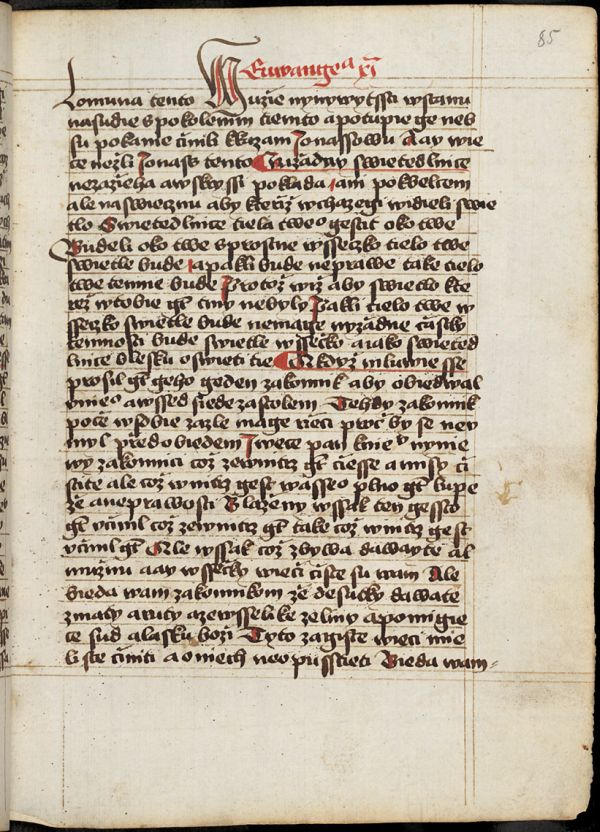 85
Euwangea xi
lomuna tento Muzie nynywytssti wstanu
nasudie spokolenim tiemto apotupie ge neb
su pokanie činili kkazani Jonassowu Aay wie
ce nežli Jonass tento Nižádny swietedlnice
nezazieha a wskryssi poklada ani pod kbelcem
ale naswiecznu aby kteřiž wchazegi widieli swie
tlo Swietedlnice tiela tweo gestit oko twe
Budeli oko twe sprostne wssieczko tielo twe
swietle bude apakli bude neprawe také tielo
twe temne bude Protož wiz aby swietlo kte
rež wtobie gt tmy nebyly Pakli tielo twe w
ssieczko swietle bude nemage nyzadne častky
temnosti bude swietle wssiecko a iako swieted
lnice blesku oswieti tie A když mluwiesse
prosil gt geho geden zakonnik aby obiedwal
vnieo a wssed siede zastolem Tehdy zakonnik
poče wsobie zazle mage rieci proč by se ney
myl przed obiedem I wece pan knie v nynie
wy zakonnici což zewnitrz gt čiesse a misy či
stite ale což wnitrz gest wasseo plno gt lupe
že a neprawosti Blazeny wssak ten gessto
gt včinil což zewnitrz gt take což wnitrz gest
včinil gt Ale wssak což zbywa dawayte al
mužnu a ay wssecky wieci čisté su wam Ale
bieda wam zakonnikom že desatky dawate
z maty a ruty a zewsselike zeliny a pomigie
te sud a lasku boži Tyto zagisté wieci mie
li ste činiti a oniech neopusstieti Bieda wam